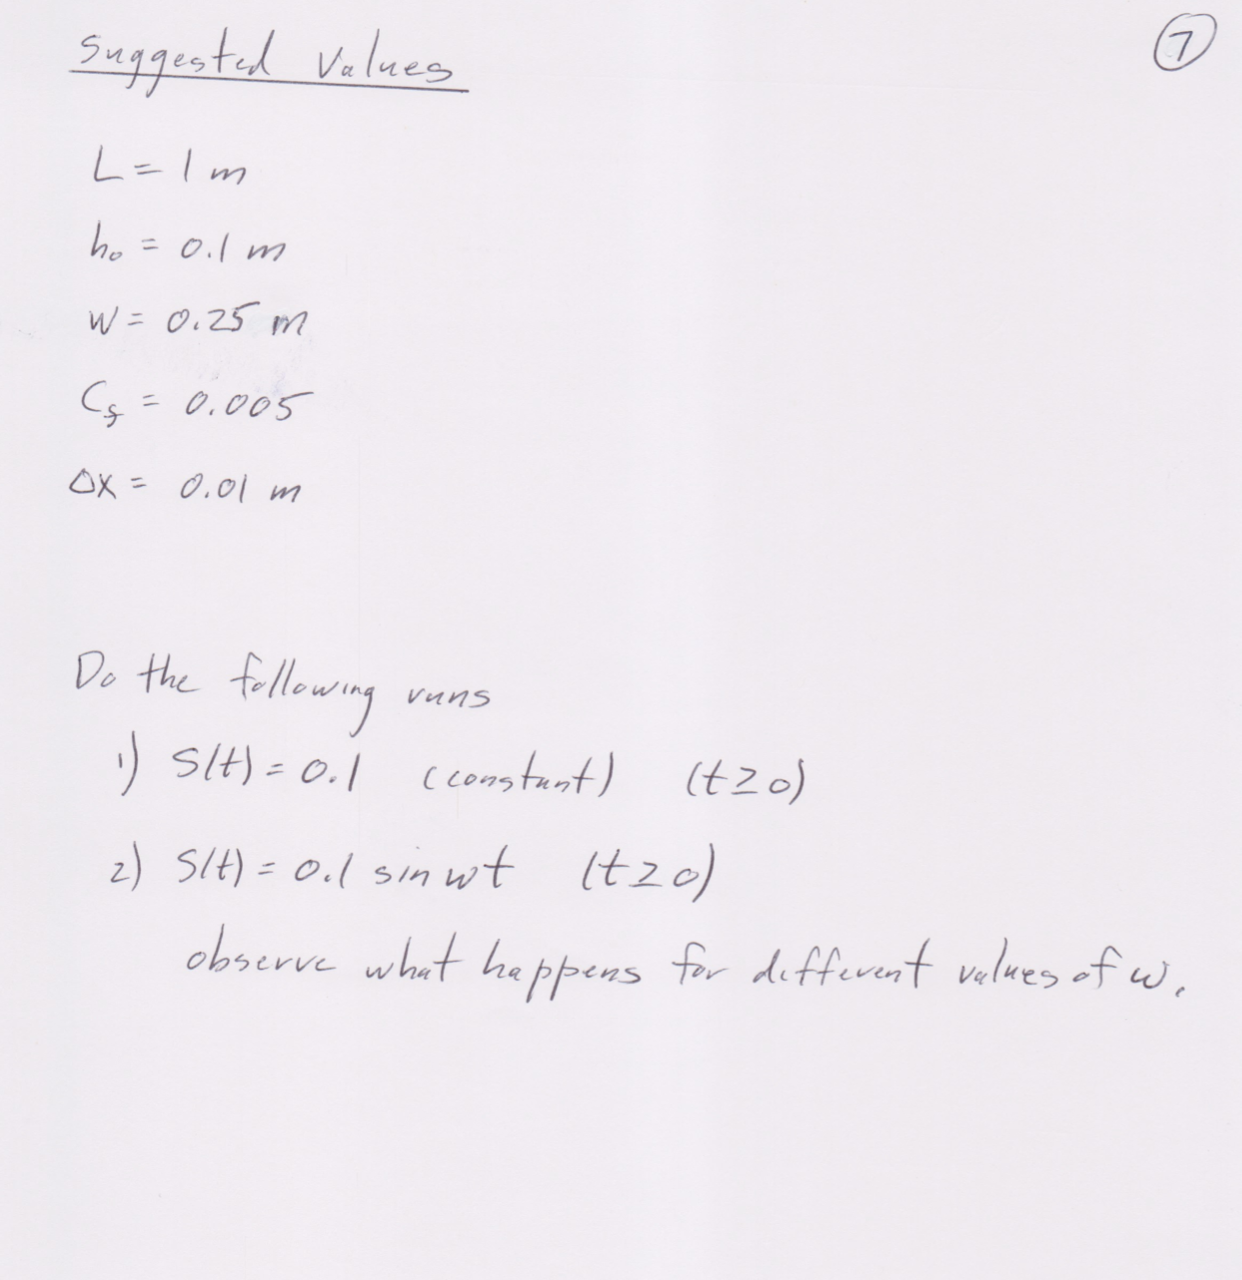 Suggested Values
7
L = 1 m
h₀ = 0.1 m
W = 0.25 m
Cf = 0.005
Δx = 0.01 m
Do the following runs
1) S(t) = 0.1 (constant) (t ≥ 0)
2) S(t) = 0.1 sin ωt (t ≥ 0)
observe what happens for different values of ω.